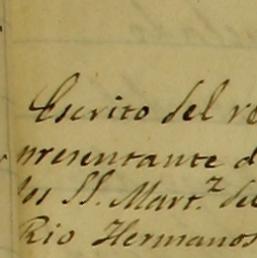 Escrito del re
presentante d
los SS. Mart.z del
Rio Hermanos